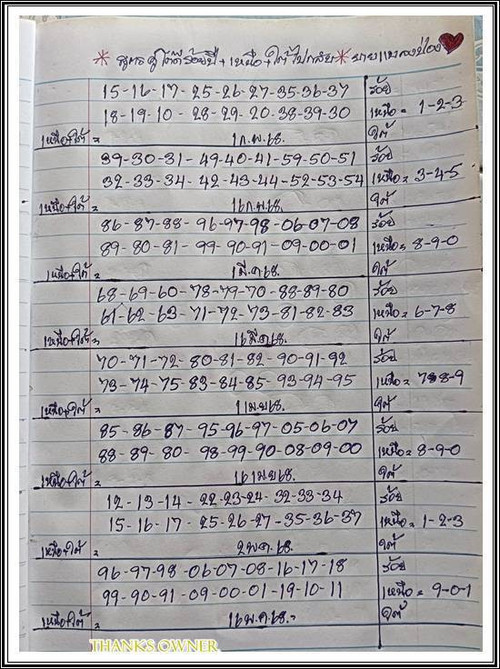 15-16-17-25-26-27-35-36-37 ร้อย
18-19-10-28-29-20-38-39-30 เหนือ = 1-2-3
เหนือ+ใต้ = 1 ก.พ. 68. ใต้
39-30-31-49-40-41-59-50-51 ร้อย
32-33-34-42-43-44-52-53-54 เหนือ = 3-4-5
เหนือ+ใต้ = 16 ก.พ. 68. ใต้
86-87-88-96-97-98-06-07-08 ร้อย
89-80-81-99-90-91-09-00-01 เหนือ = 8-9-0
เหนือ+ใต้ = 1 มี.ค. 68. ใต้
68-69-60-78-79-70-88-89-80 ร้อย
61-62-63-71-72-73-81-82-83 เหนือ = 6-7-8
เหนือ+ใต้ = 16 มี.ค. 68. ใต้
70-71-72-80-81-82-90-91-92 ร้อย
73-74-75-83-84-85-93-94-95 เหนือ = 7-8-9
เหนือ+ใต้ = 1 เม.ย. 68. ใต้
85-86-87-95-96-97-05-06-07 ร้อย
88-89-80-98-99-90-08-09-00 เหนือ = 8-9-0
เหนือ+ใต้ = 16 เม.ย. 68. ใต้
12-13-14-22-23-24-32-33-34 ร้อย
15-16-17-25-26-27-35-36-37 เหนือ = 1-2-3
เหนือ+ใต้ = 2 พ.ค. 68. ใต้
96-97-98-06-07-08-16-17-18 ร้อย
99-90-91-09-00-01-19-10-11 เหนือ = 9-0-1
เหนือ+ใต้ = 16 พ.ค. 68. ใต้
THANKS OWNER